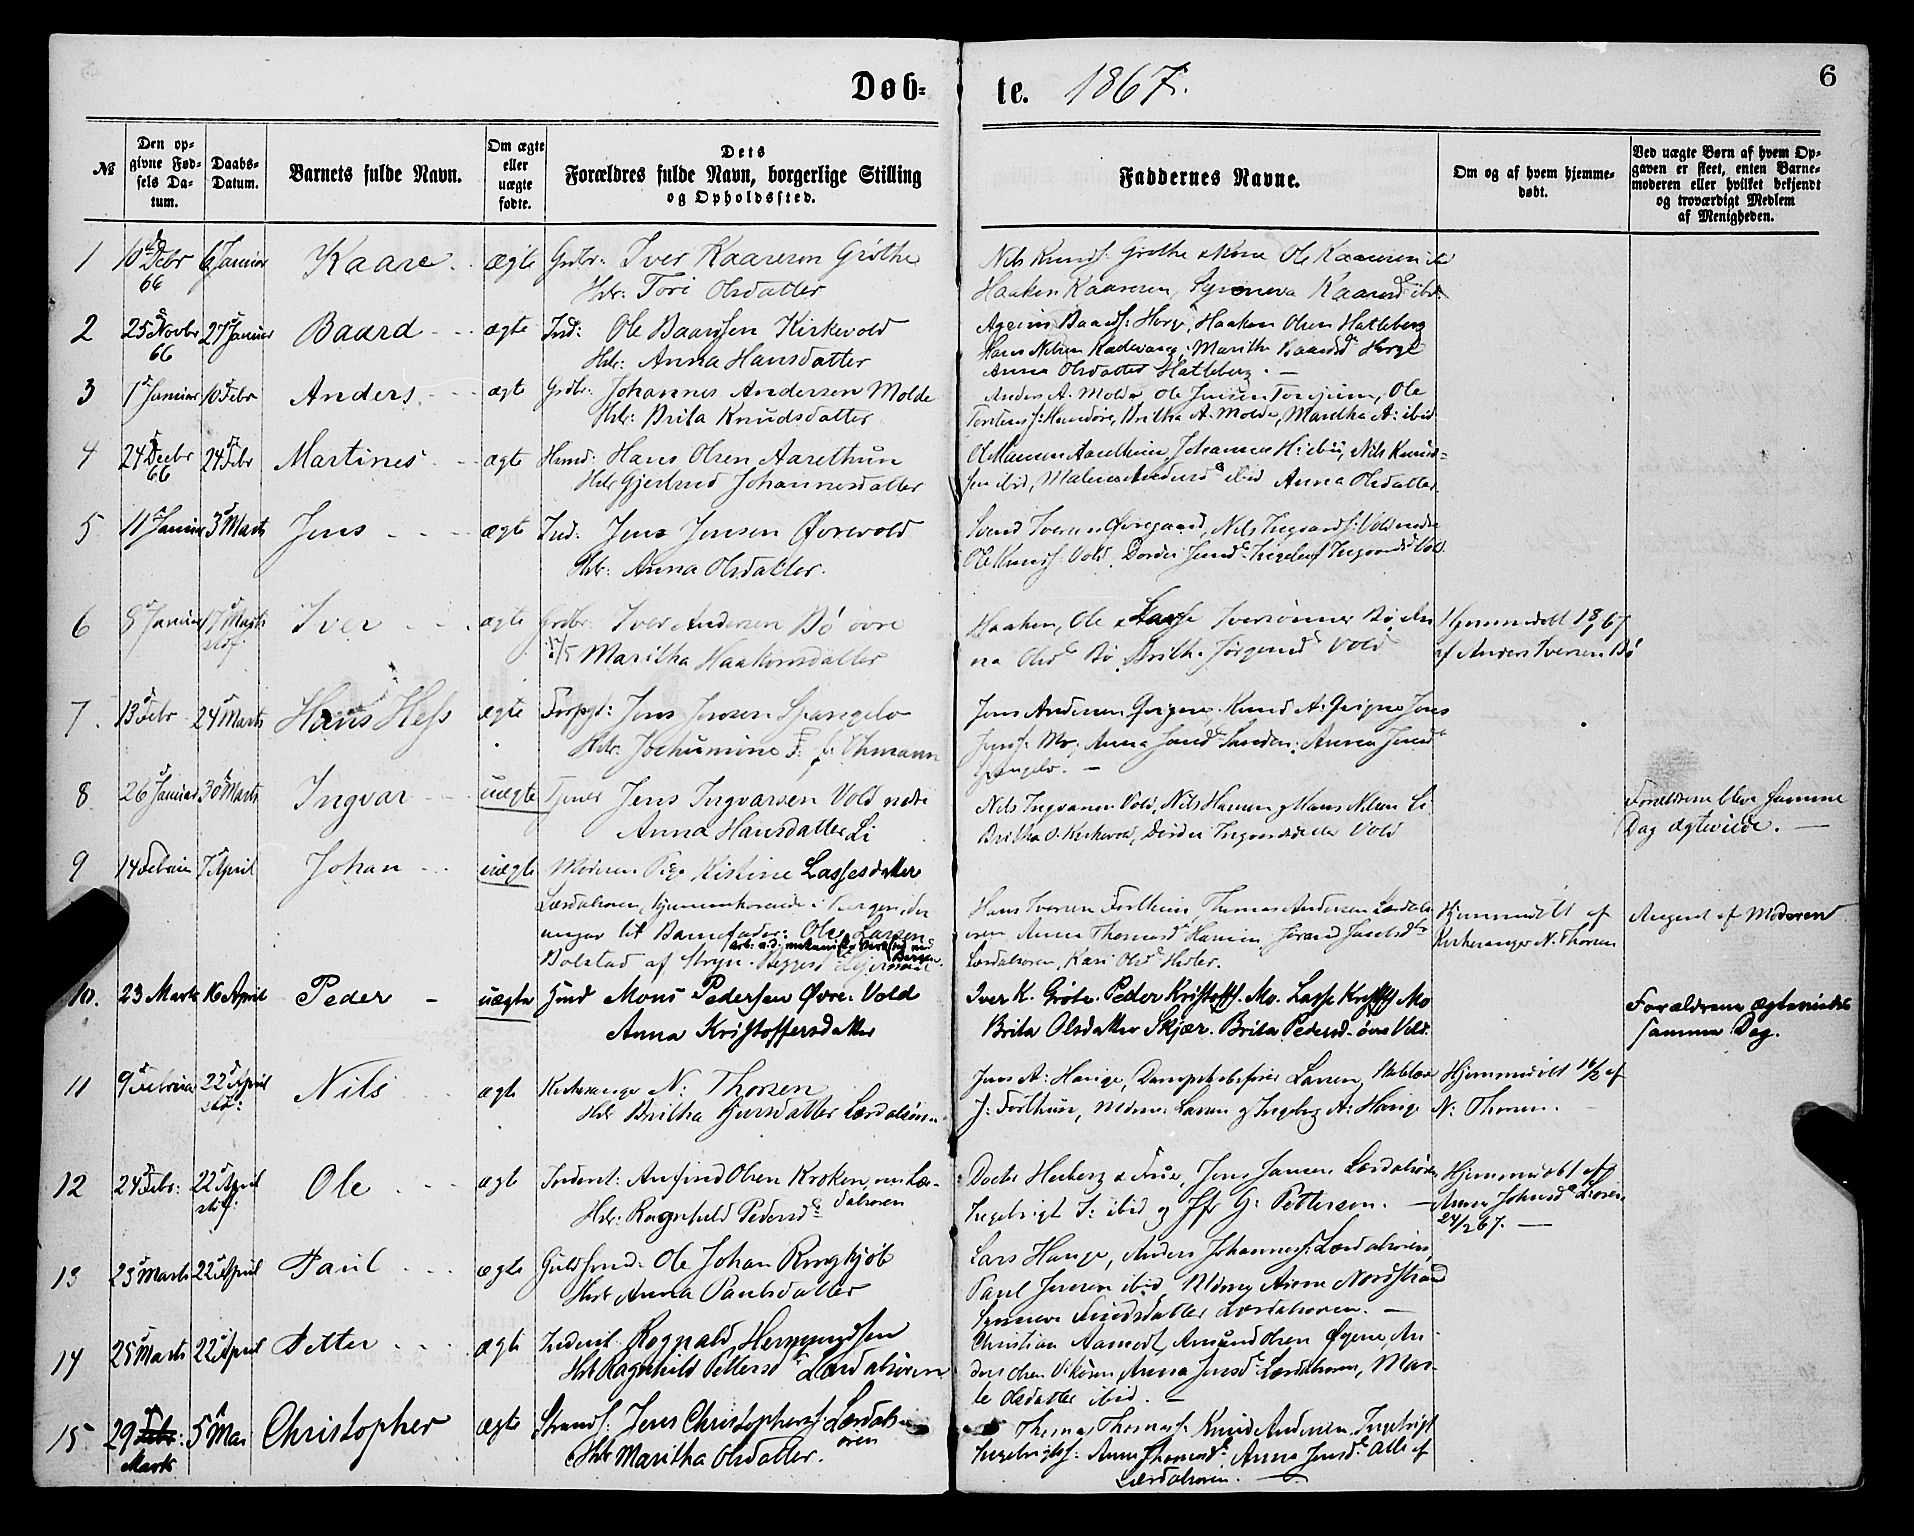 Døb-
te. 1867.
6
№
Den opgivne Fødsels Datum.
Daabs-Datum.
Barnets fulde Navn.
Om ægte eller uægte fødte.
Dets Forældres fulde Navn, borgerlige Stilling og Opholdssted.
Faddernes Navne.
Om og af hvem hjemmedøbt.
Ved uægte Børn af hvem Opgaven er skeet, enten Barnemoderen eller hvilket bekjendt og troværdigt Medlem af Menigheden.
1 10 Debr 66 6 Januar Kaare ægte Grdbr: Iver Kaaresen Grøthe
Hst: Tori Olsdatter
Nils Knuds: Grøthe Ole Kaaresen
Haaken Kaaresen, Synneva Kaaresd ibid.
2 25 Novbr 66 27 Januar Baard ægte Ind: Ole Baardsen Kirkevold
Hst: Anna Hansdatter
Baards: Haaken Olsen Hatleberg
Hans Nilsen Maritha Baardsd
Anna Olsdatter Hatleberg. —
3 1 Januar 10 Febr Anders ægt Grdbr: Johannes Andersen Molde
Hst: Brita Knudsdatter
Anders A. Molde, Ole Jensen Ole
Britha A. Molde, Martha A: ibid
4 24 Debr 66 24 Febr Martines ægte Hmd: Hans Olsen Aarethun
Hst Gjertrud Johannesdatter
Ole Hansen Aarethun Johannes H: ibid, Nils Knud-
sen ibid, Malena Andersd ibid Anna Olsdatter
5 11 Januar 3 Marts Jens ægte Ind: Jens Jensen Øvrevold
Hst: Anna Olsdatter.
Svend Iversen Øvregaard, Nils Ingvards: Vold nedre
Ole Knuds: Vold, Dordei Jensd. Ingeleif Ingvardsd Vold
6 8 Januar 17 Marts Iver ægte Grdbr: Iver Andersen Bø øvre
Maritha Haakonsdatter
Haaken, Ole & Lasse Iversønner Bø, An-
na Olsd Bø Britha Jørgensd Vold
Hjemmedøbt 67
af Anders Iversen Bø
7. 13 Febr 24 Marts Hans Hess ægte Forpgt: Jens Jensen Spangelo
Hst. Jochumine F: Ohmann
Jens Andersen Knud A: Jens
Jens: Mo, Anna Anna Jensd
Spangelo. —
8. 26 Januar 30 Marts Ingvar uægte Tjener Jens Ingvarsen Vold nedre
Anna Hansdatter Li
Nils Ingvarsen Vold, Nils Hansen, Hans Nilsen Li
Britha O. Kirkevold, Dordei Ingvardsdatter Vold
Forældrene bleve samme
Dag ægteviede. —
9 14 Februar 7 April Johan uægte Moderen Pige Kistine Lassesdatter
Lærdalsøren, hjemmehørende i Bergen, der
angav til Barnefader: Ole Larsen
arb. v.d. mekaniske Verksted ved Bergen.
Bolstad af Stryn. Begges
Hans Iversen Forthun, Thomas Andersen Lærdals-
øren Anna Thomasd Hanum Jørand
Lærdalsøren, Kari Olsd
Hjemmedøbt af
Kirkesanger N. Thorsen
Angivet af Moderen
10. 23 Marts 16 April Peder uægte Hmd Mons Pedersen Øvre Vold
Anna Kristoffersdatter
Iver K. Grøte. Peder Kristoffs. Mo. Lasse Kristoffs. Mo
Brita Olsdatter Skjær. Brita Pedersd. øvre Vold.
Forældrene ægteviedes
samme Dag.
11 9 Februar 22 April stdf: Nils ægte Kirkesanger N: Thorsen
Hst Britha Gjersdatter Lærdalsøren.
Jens A: Hauge, Dampskibsfører Larsen,
J: Forthun, Mdme: Larsen og Ingeborg A: Hauge
Hjemmedøbt 16/2 af
N: Thorsen.
12 24 Febr: 22 April stdf: Ole ægte Inderst: Anfind Olsen Kroken, nu Lær-
dalsøren
Hst: Ragnhild Pedersd
Doctor Heiberg & Frue, Jens Jansen Lærdalsøren
Ingebrigt I: ibid og Jfr G: Pettersen. —
Hjemmedøbt af
Anna Johnsd
24/2 67. —
13 23 Marts 22 April Paul ægte Guldsmd: Ole Johan Ringkjøb
Hst Anna Paulsdatter
Lars Hauge, Anders Johanness: Lærdalsøren,
Paul Jensen ibid, Mdme Nordstrand
Synneva Lærdalsøren. —
14 25 Marts 22 April Petter ægte Inderst: Rognald Hermundsen
Hst Ragnhild Pettersd Lærdalsøren
Christian Aamodt, Amund Olsen Øyene, An-
ders Olsen Anna Jensd Lærdalsøren, Mar-
te Olsdatter ibid. —
15. 29 Febr: Marts 5 Mai Christopher ægte Strands: Jens Christophers: Lærdals-
øren
Hst Maritha Olsdatter.
Thomas Thomas: Knud Andersen, Ingebrigt
Ingebrigts: Anna Thomasd, Anna Jensd Alle af
Lærdalsøren. —